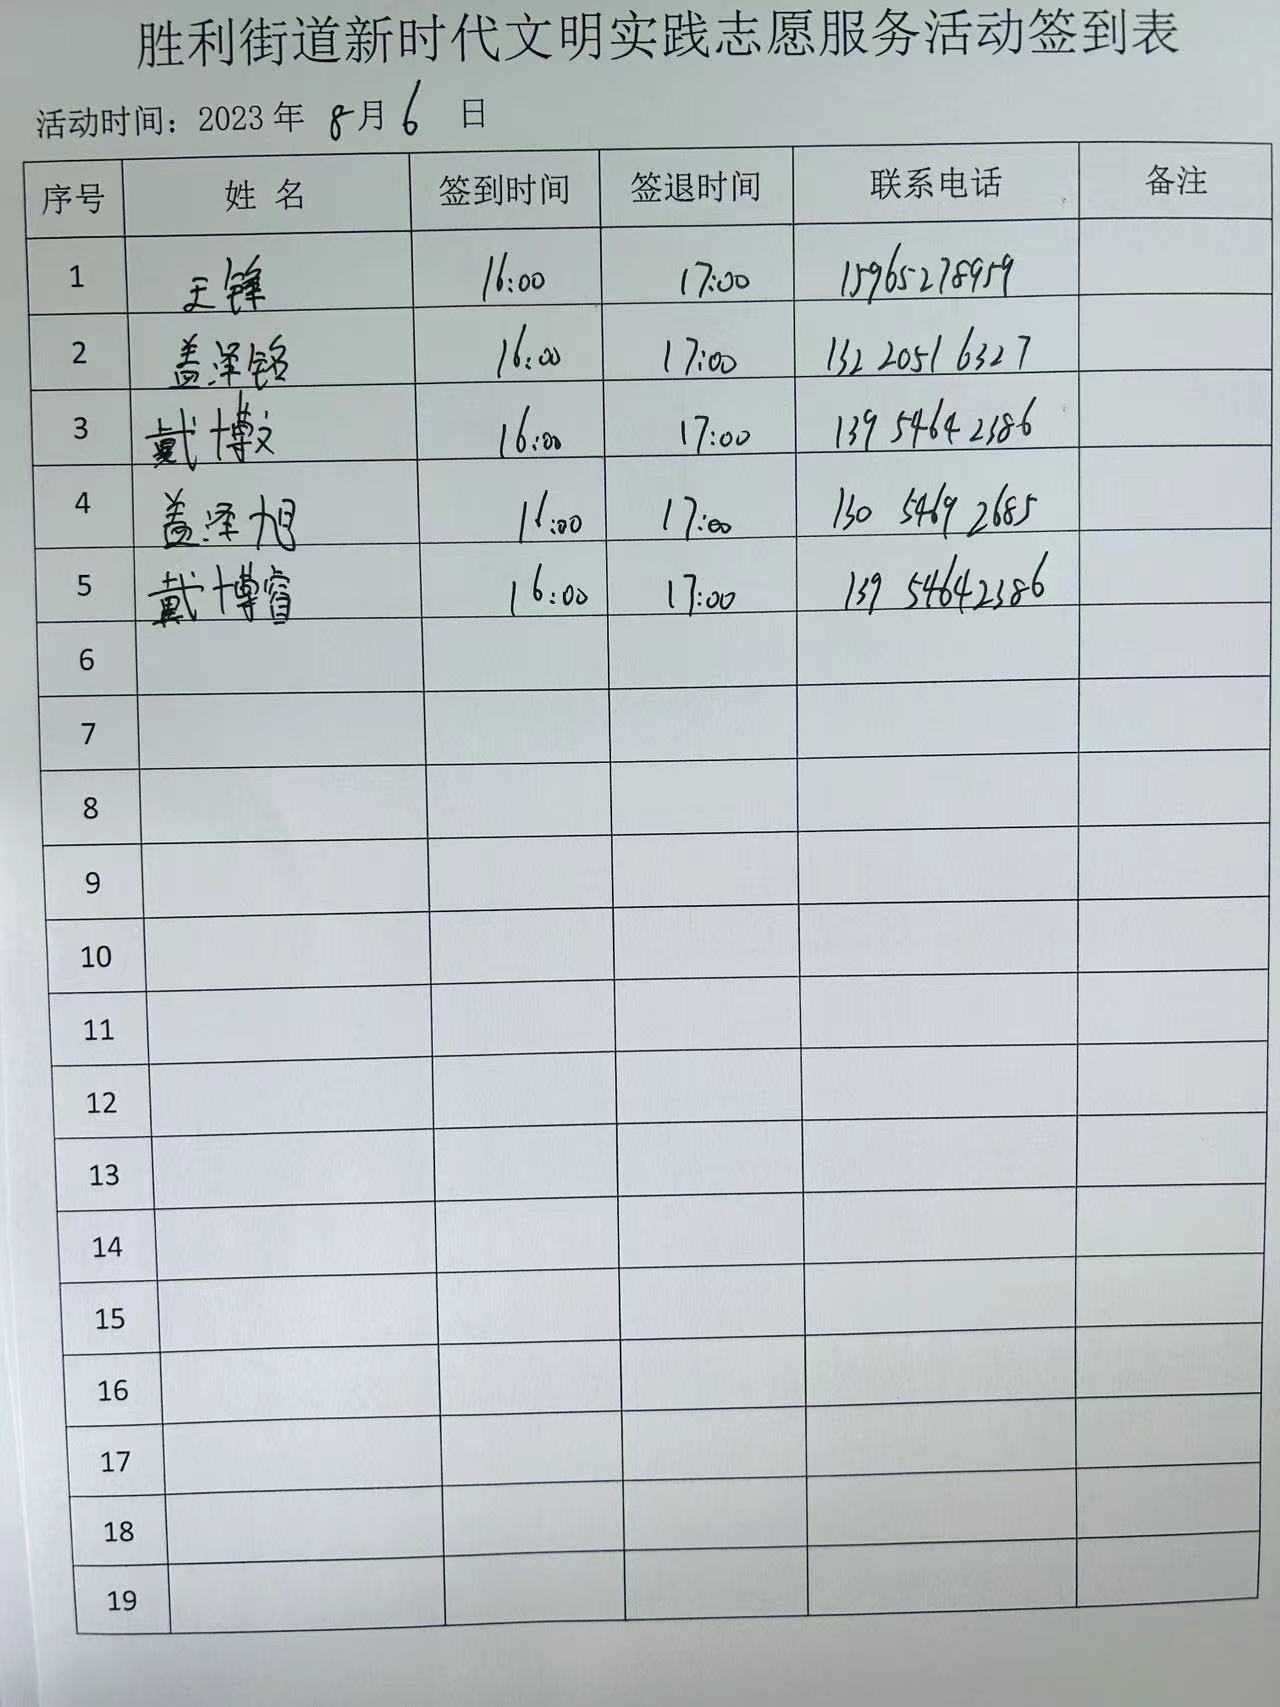 胜利街道新时代文明实践志愿服务活动签到表
活动时间：2023 年 8月 6 日
序号 姓 名 签到时间 签退时间 联系电话 备注
1 王锋 16:00 17:00 15965278959
2 盖泽铭 16:00 17:00 132 2051 6327
3 戴博文 16:00 17:00 139 5464 2386
4 盖泽旭 16:00 17:00 130 5469 2685
5 戴博睿 16:00 17:00 139 54642386
6
7
8
9
10
11
12
13
14
15
16
17
18
19